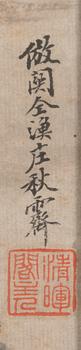 倣関仝漁庄秋霽
清暉閣